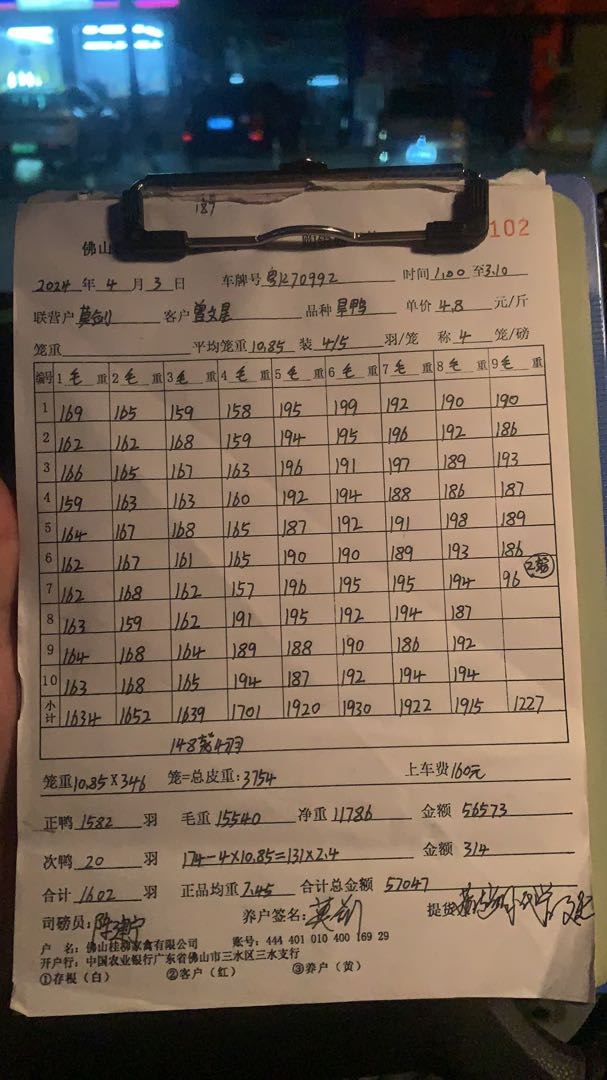 187
佛山
102
2024 年 4 月 3 日 车牌号 粤E70992 时间 1.00 至 3.10
联营户 莫剑 客户 曾文星 品种 旱鸭 单价 4.8 元/斤
笼重 平均笼重 10.85 装 4/5 羽/笼 称 4 笼/磅
编号 1 毛 重 2 毛 重 3 毛 重 4 毛 重 5 毛 重 6 毛 重 7 毛 重 8 毛 重 9 毛 重
1 169 165 159 158 195 199 192 190 190
2 162 162 168 159 194 195 196 192 186
3 166 165 167 163 196 191 197 189 193
4 159 163 163 160 192 194 188 186 187
5 164 167 168 165 187 192 191 198 189
6 162 167 161 165 190 190 189 193 186
7 162 168 162 157 196 195 195 194 96 2笼
8 163 159 162 191 195 192 194 187
9 164 168 164 189 188 190 186 192
10 163 168 165 194 187 192 194 194
小计 1634 1652 1639 1701 1920 1930 1922 1915 1227
148笼4羽
笼重 10.85 X 346 笼=总皮重: 3754 上车费 160元
正鸭 1582 羽 毛重 15540 净重 11786 金额 56573
次鸭 20 羽 174-4×10.85=131×2.4 金额 314
合计 1602 羽 正品均重 7.45 合计总金额 57047
司磅员: 养户签名: 莫剑 提货
户 名: 佛山桂柳家禽有限公司 账号: 444 401 010 400 169 29
开户行: 中国农业银行广东省佛山市三水区三水支行
①存根（白） ②客户（红） ③养户（黄）